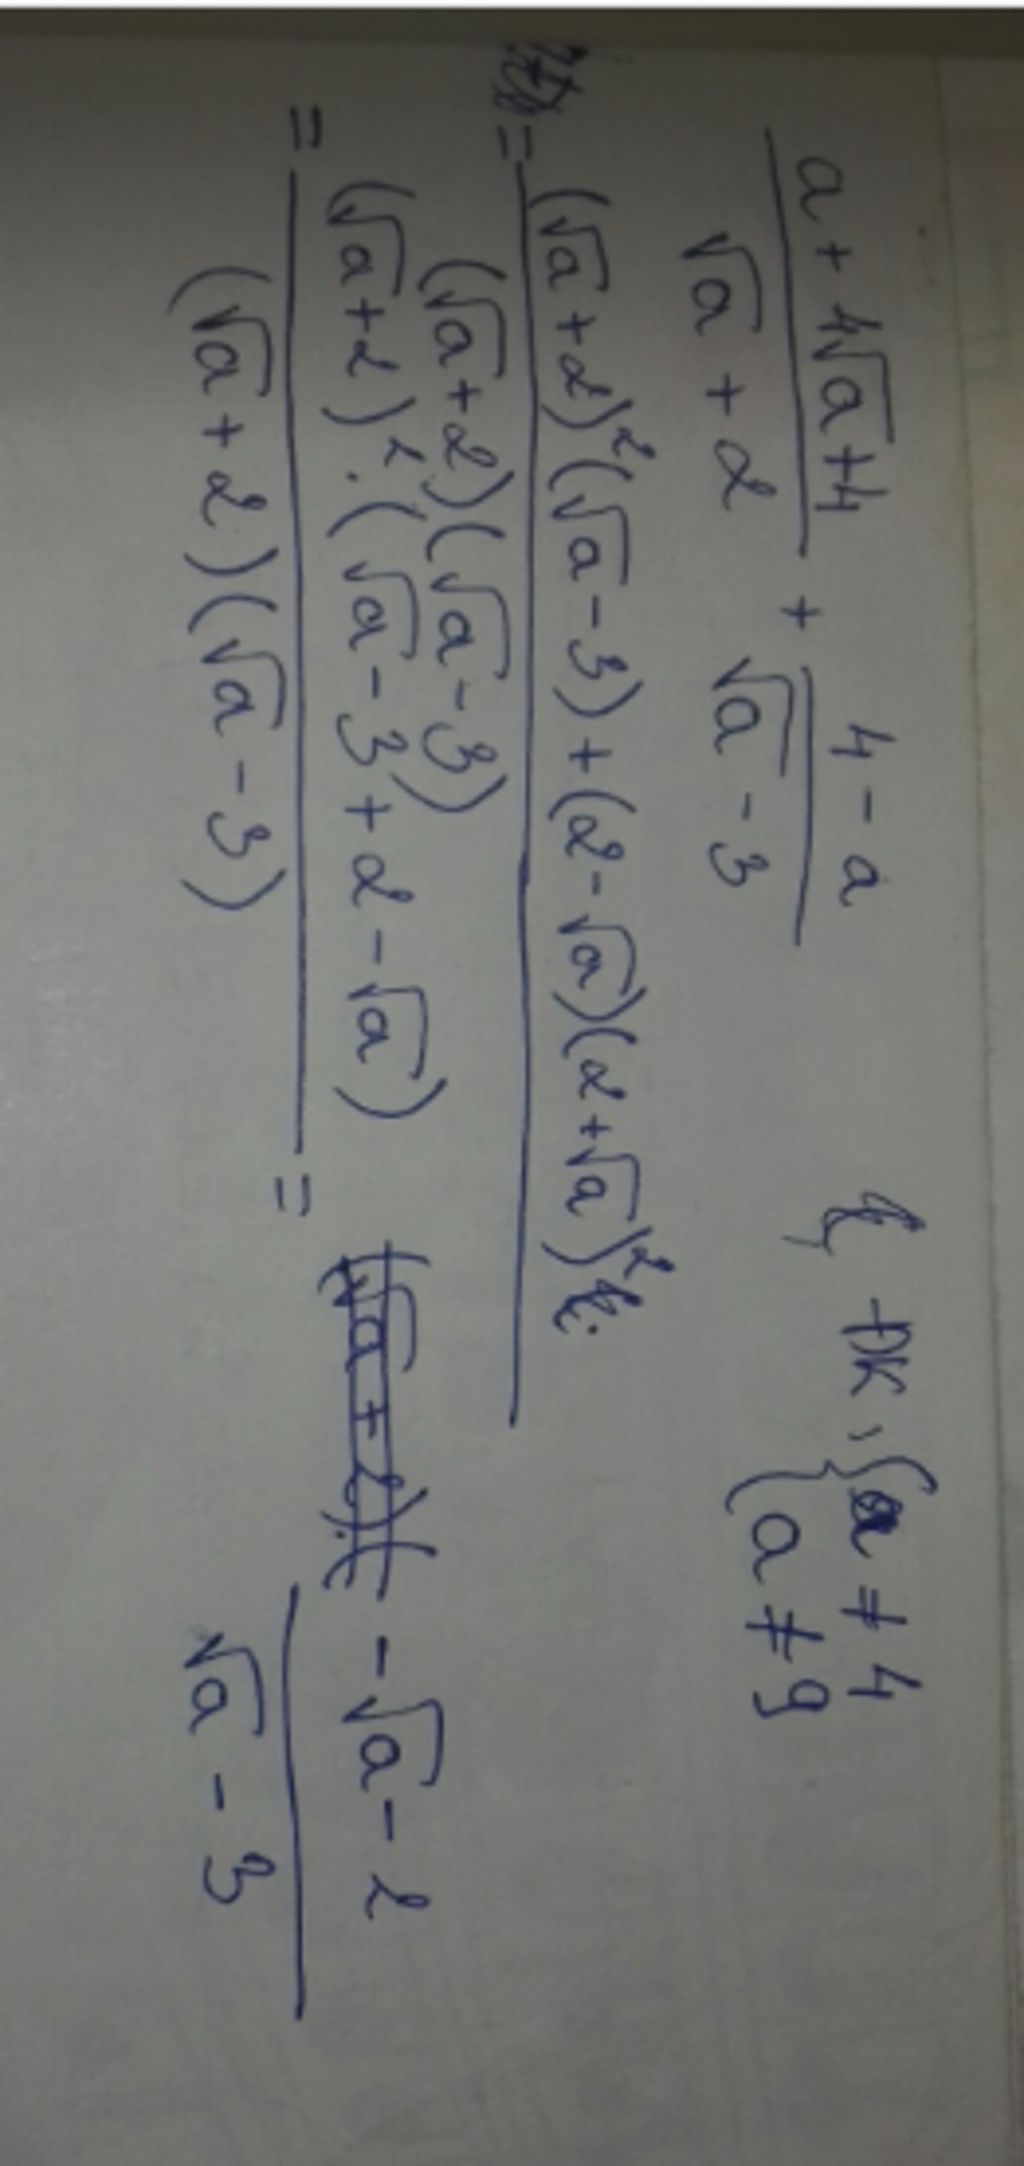 (a + 4√a + 4)/(√a + 2) + (4 - a)/(√a - 3) ĐK, { a ≠ 4
{ a ≠ 9
= ((√a + 2)²(√a - 3) + (2 - √a)(2 + √a)²)/((√a + 2)(√a - 3))
= ((√a + 2)² · (√a - 3 + 2 - √a))/((√a + 2)(√a - 3)) = (-√a - 2)/(√a - 3)